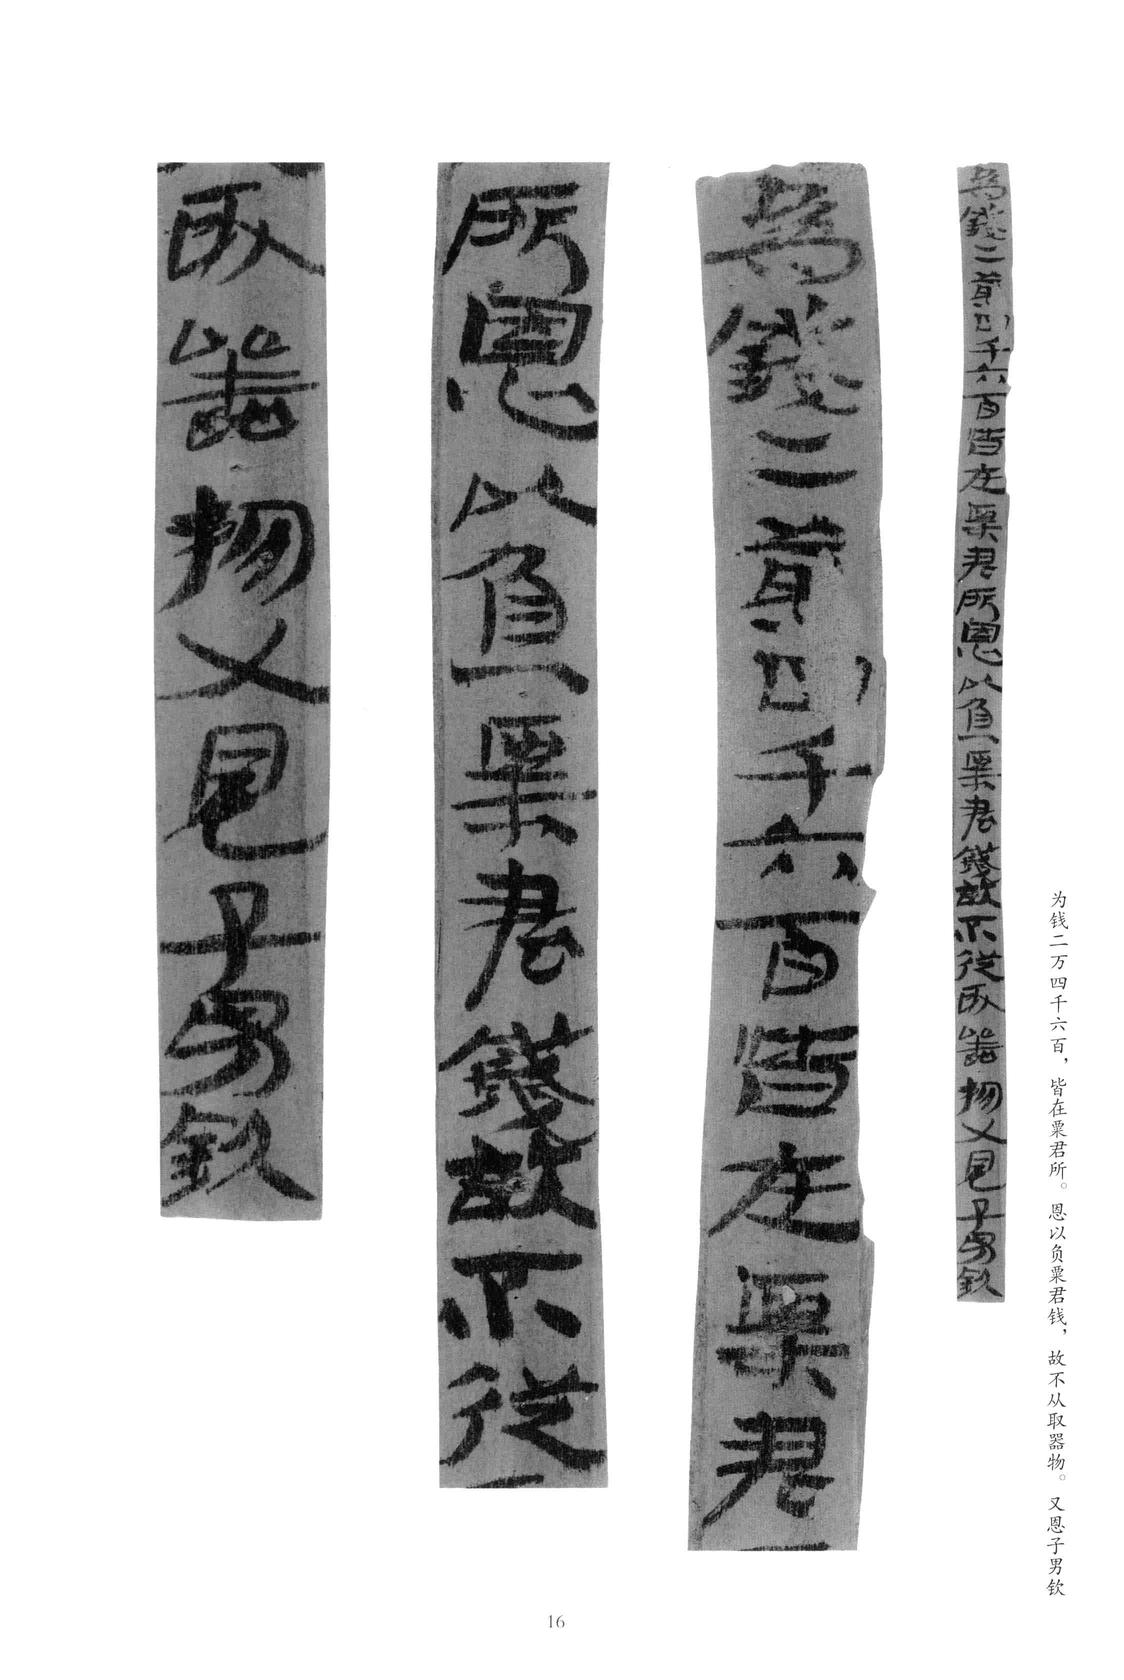 为钱二万四千六百，皆在粟君所。恩以负粟君钱，故不从取器物。又恩子男钦
為錢二萬四千六百皆在粟君所恩以負粟君錢故不從取器物又恩子男欽
為錢二萬四千六百皆在粟君
所恩以負粟君錢故不從
取器物又恩子男欽
16